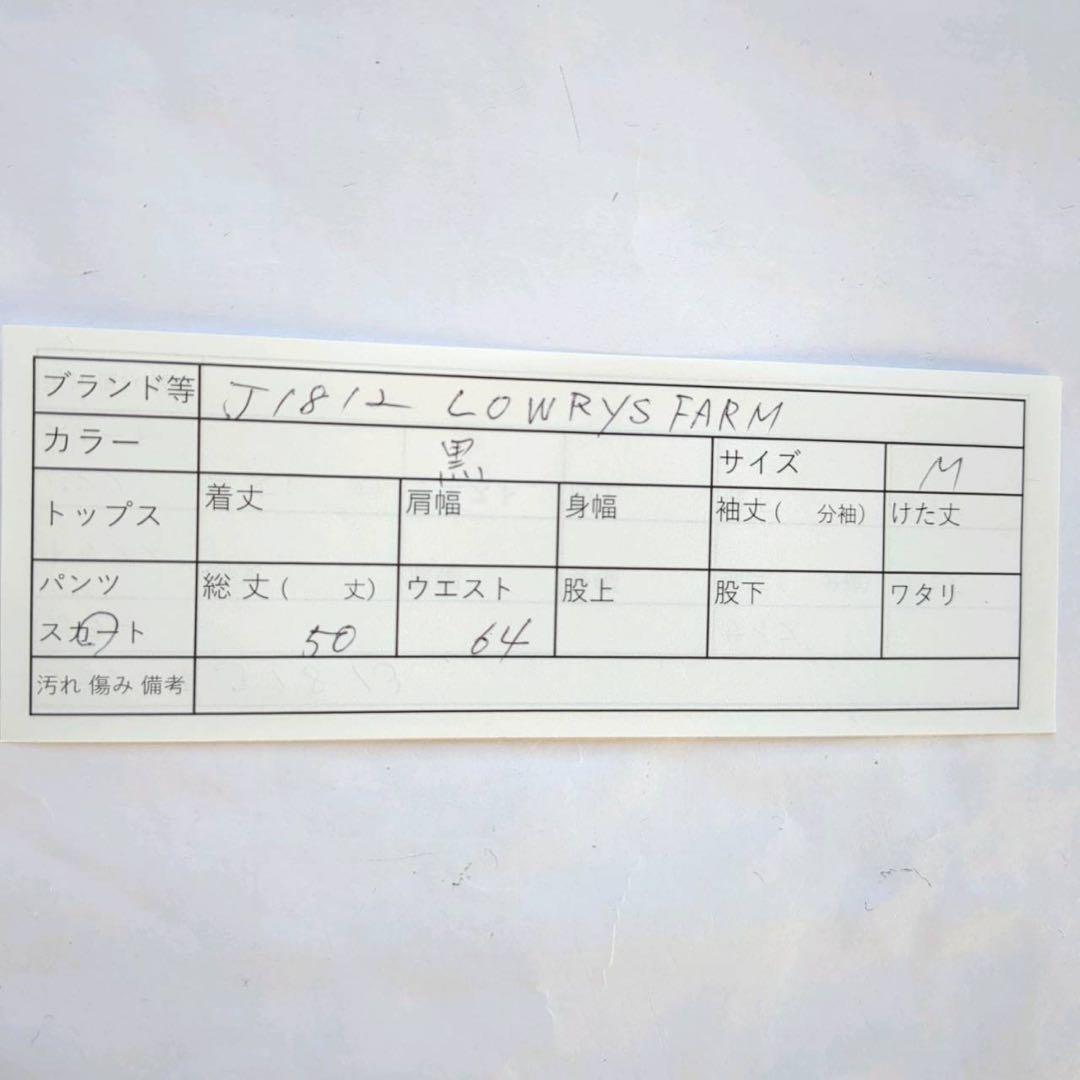 ブランド等 J1812 LOWRYS FARM
カラー 黒 サイズ M
トップス 着丈 肩幅 身幅 袖丈( 分袖) けた丈
パンツ 総丈( 丈) ウエスト 股上 股下 ワタリ
スカート 50 64
汚れ 傷み 備考